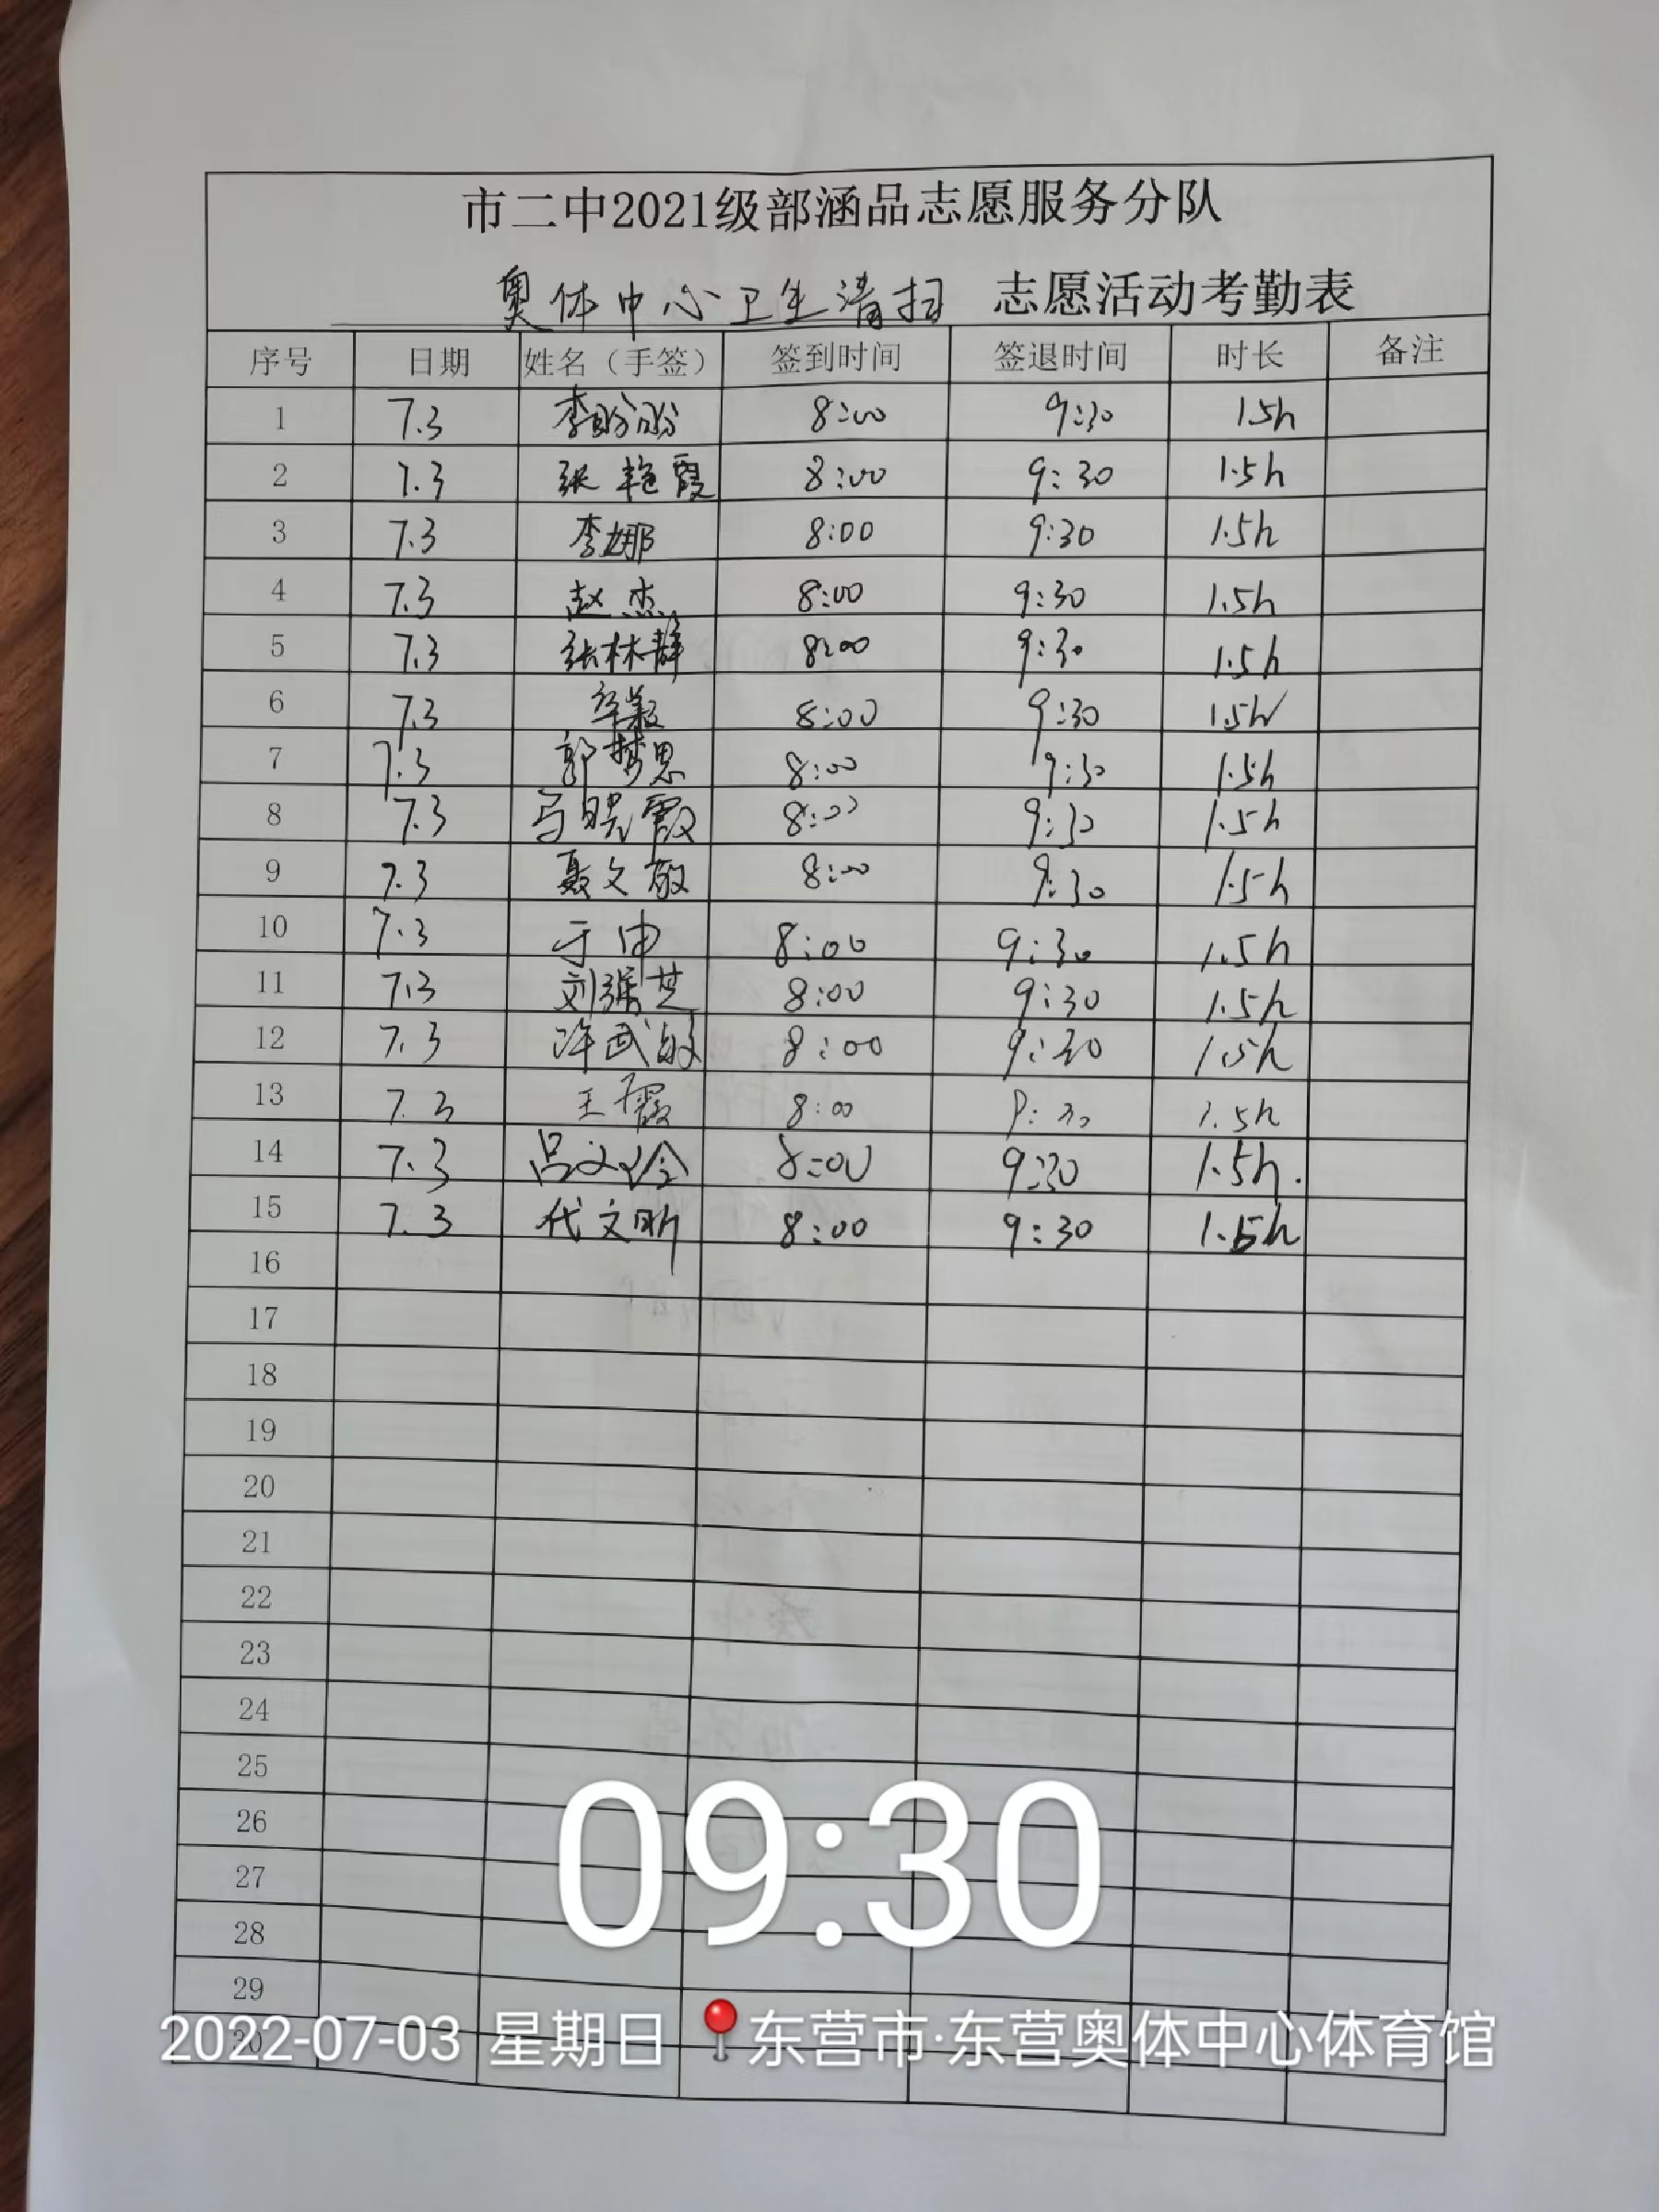 市二中2021级部涵品志愿服务分队
奥体中心卫生清扫 志愿活动考勤表
序号 日期 姓名（手签） 签到时间 签退时间 时长 备注
1 7.3 李盼盼 8:00 9:30 1.5h
2 7.3 张艳霞 8:00 9:30 1.5h
3 7.3 李娜 8:00 9:30 1.5h
4 7.3 赵杰 8:00 9:30 1.5h
5 7.3 张林静 8:00 9:30 1.5h
6 7.3 8:00 9:30 1.5h
7 7.3 郭梦思 8:00 9:30 1.5h
8 7.3 马晓霞 8:00 9:30 1.5h
9 7.3 聂文敬 8:00 9:30 1.5h
10 7.3 于申 8:00 9:30 1.5h
11 7.3 刘 芝 8:00 9:30 1.5h
12 7.3 许武敏 8:00 9:30 1.5h
13 7.3 王霞 8:00 9:30 1.5h
14 7.3 吕文 8:00 9:30 1.5h.
15 7.3 代文昕 8:00 9:30 1.5h
16
17
18
19
20
21
22
23
24
25
26
27
28
29
30
09:30
2022-07-03 星期日 东营市·东营奥体中心体育馆